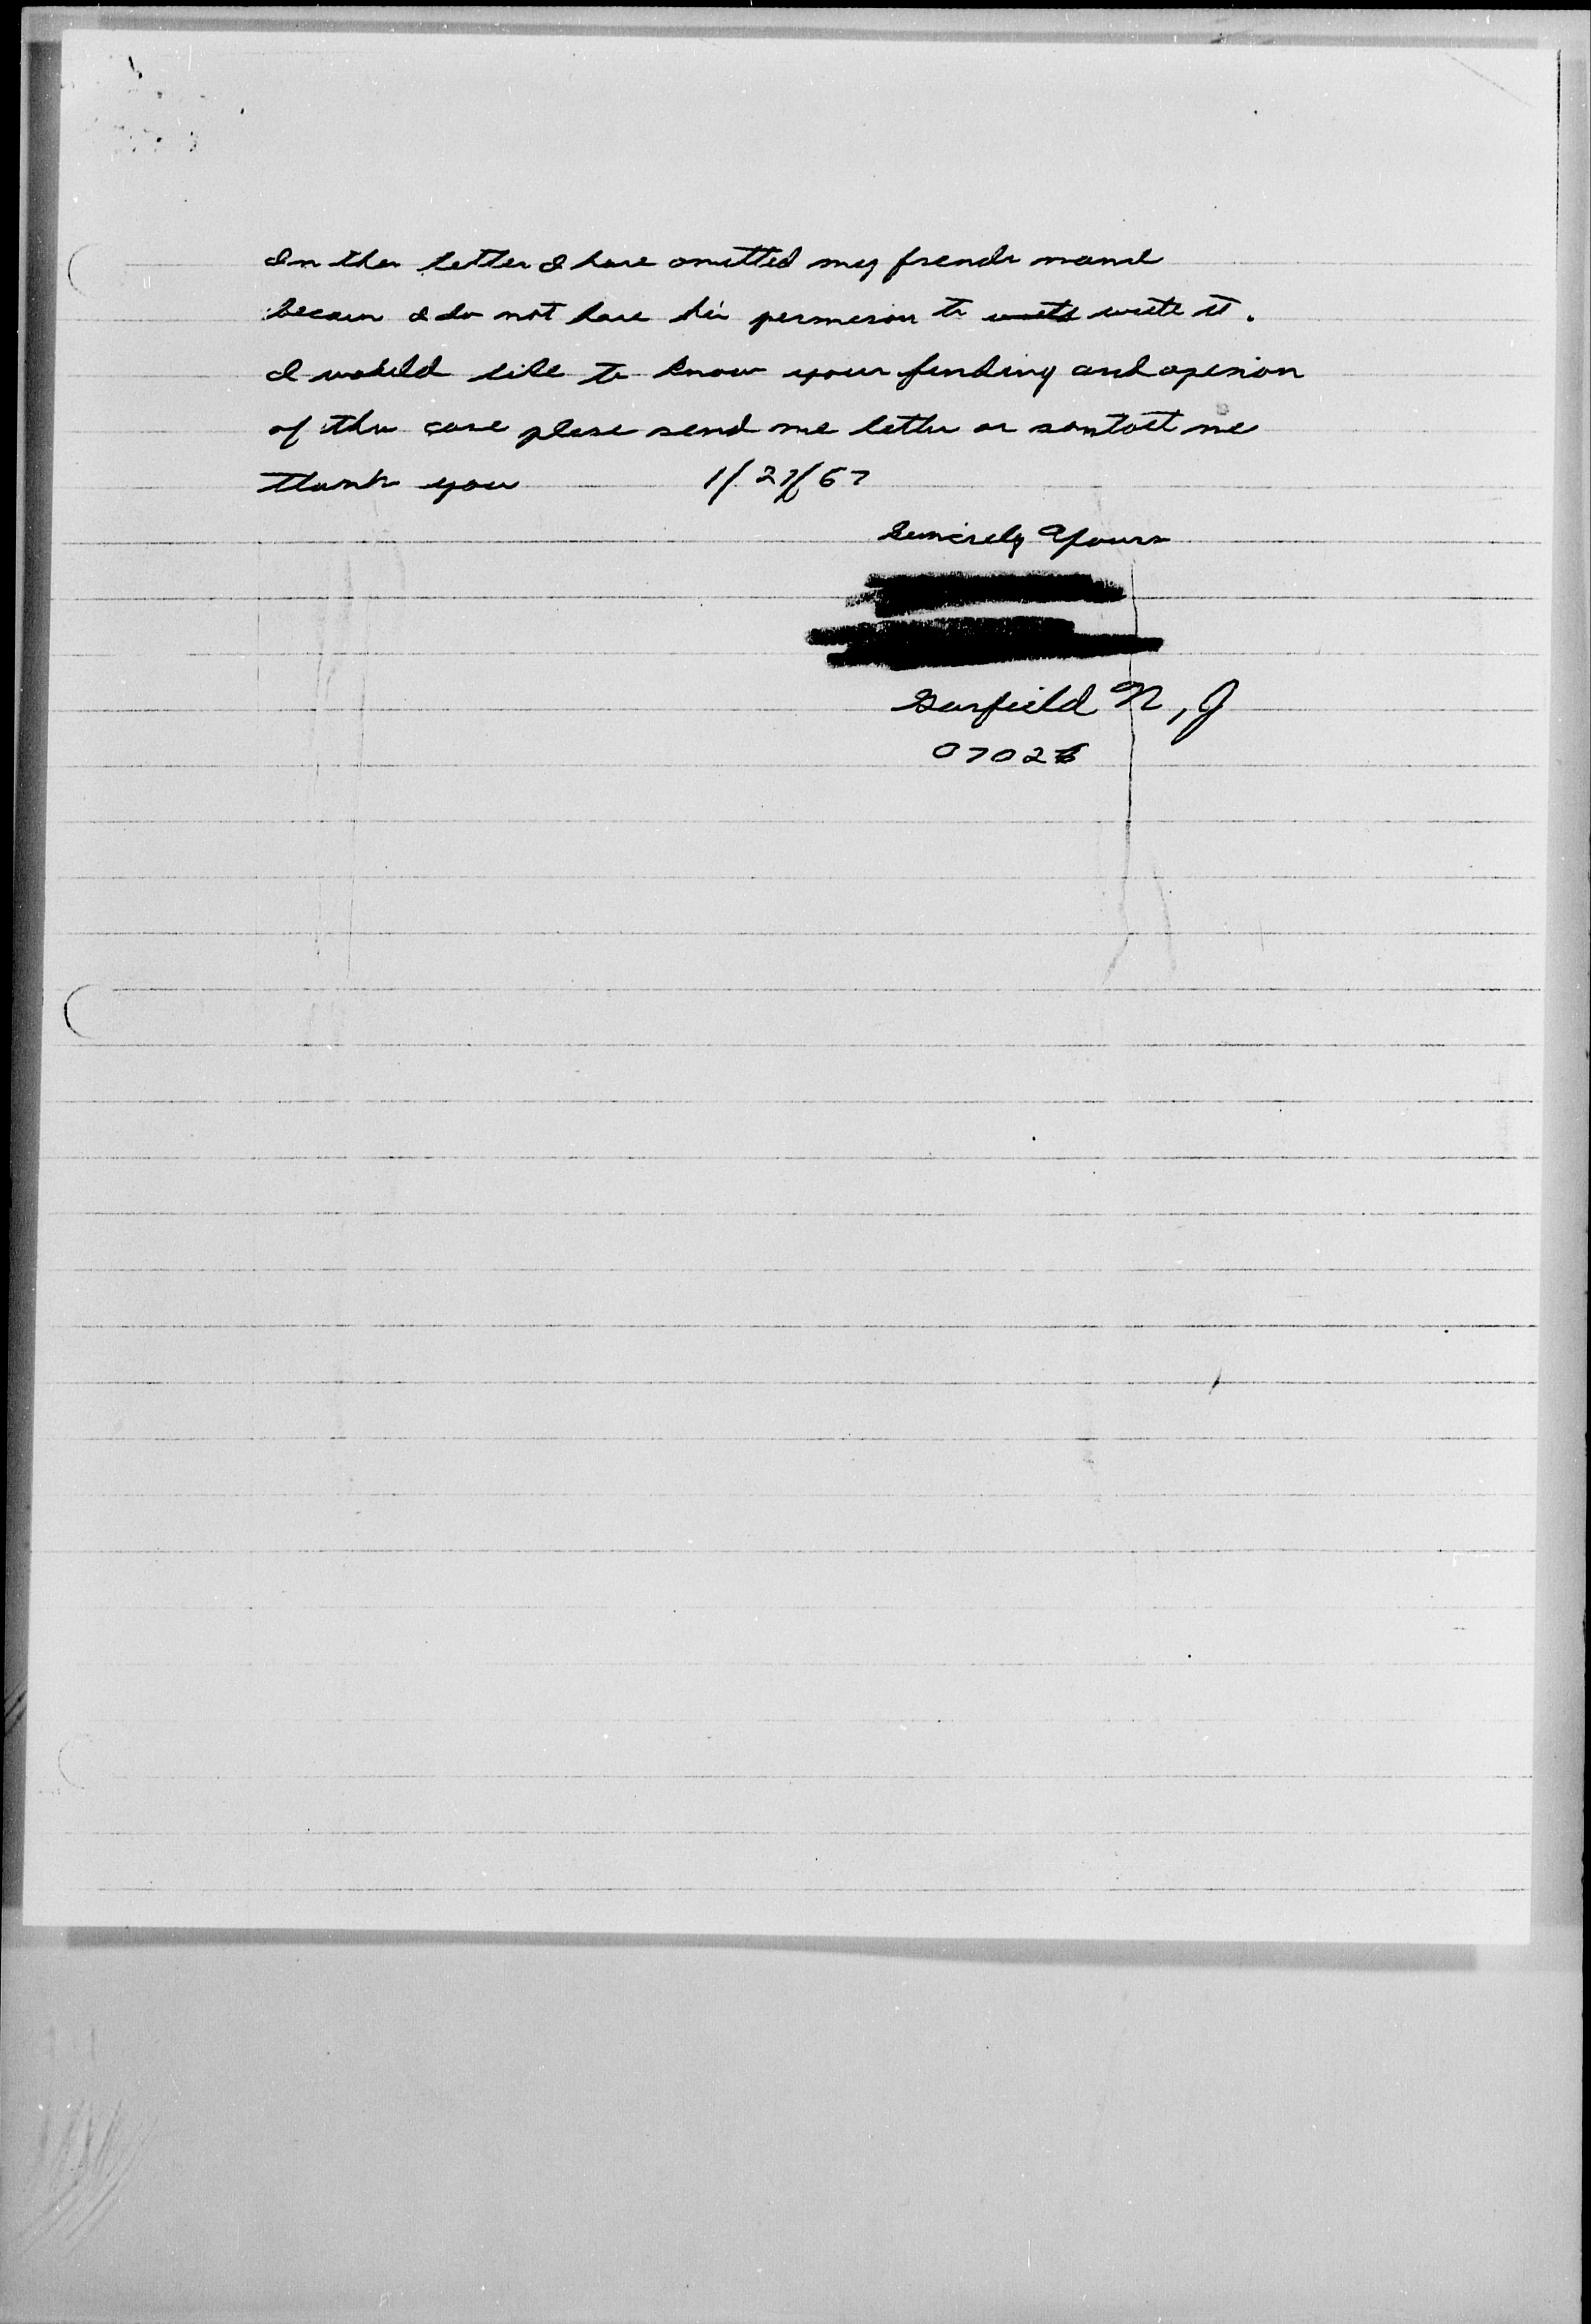 In this letter I have omitted my friends name
becaus I do not have his permision to write write it.
I woluld like to know your finding and opinion
of this case plese send me letter or contact me
thank you 1/27/67
Sincirely Yours
Garfield N, J
07026